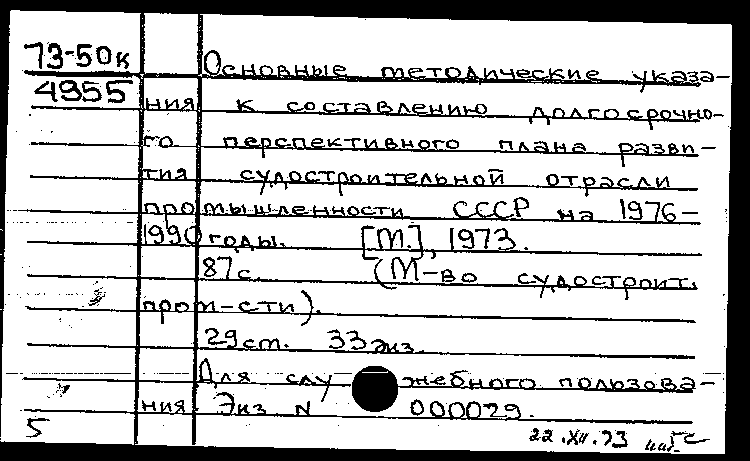 73-50к
4955
Основные методические указа-
ния к составлению долгосрочно-
го перспективного плана разви-
тия судостроительной отрасли
промышленности СССР на 1976-
1990 годы. [М.], 1973.
87с. (М-во судостроит.
пром-сти).
29см. 33экз.
Для служебного пользова-
ния. Экз N 000029.
5
22.XII.73